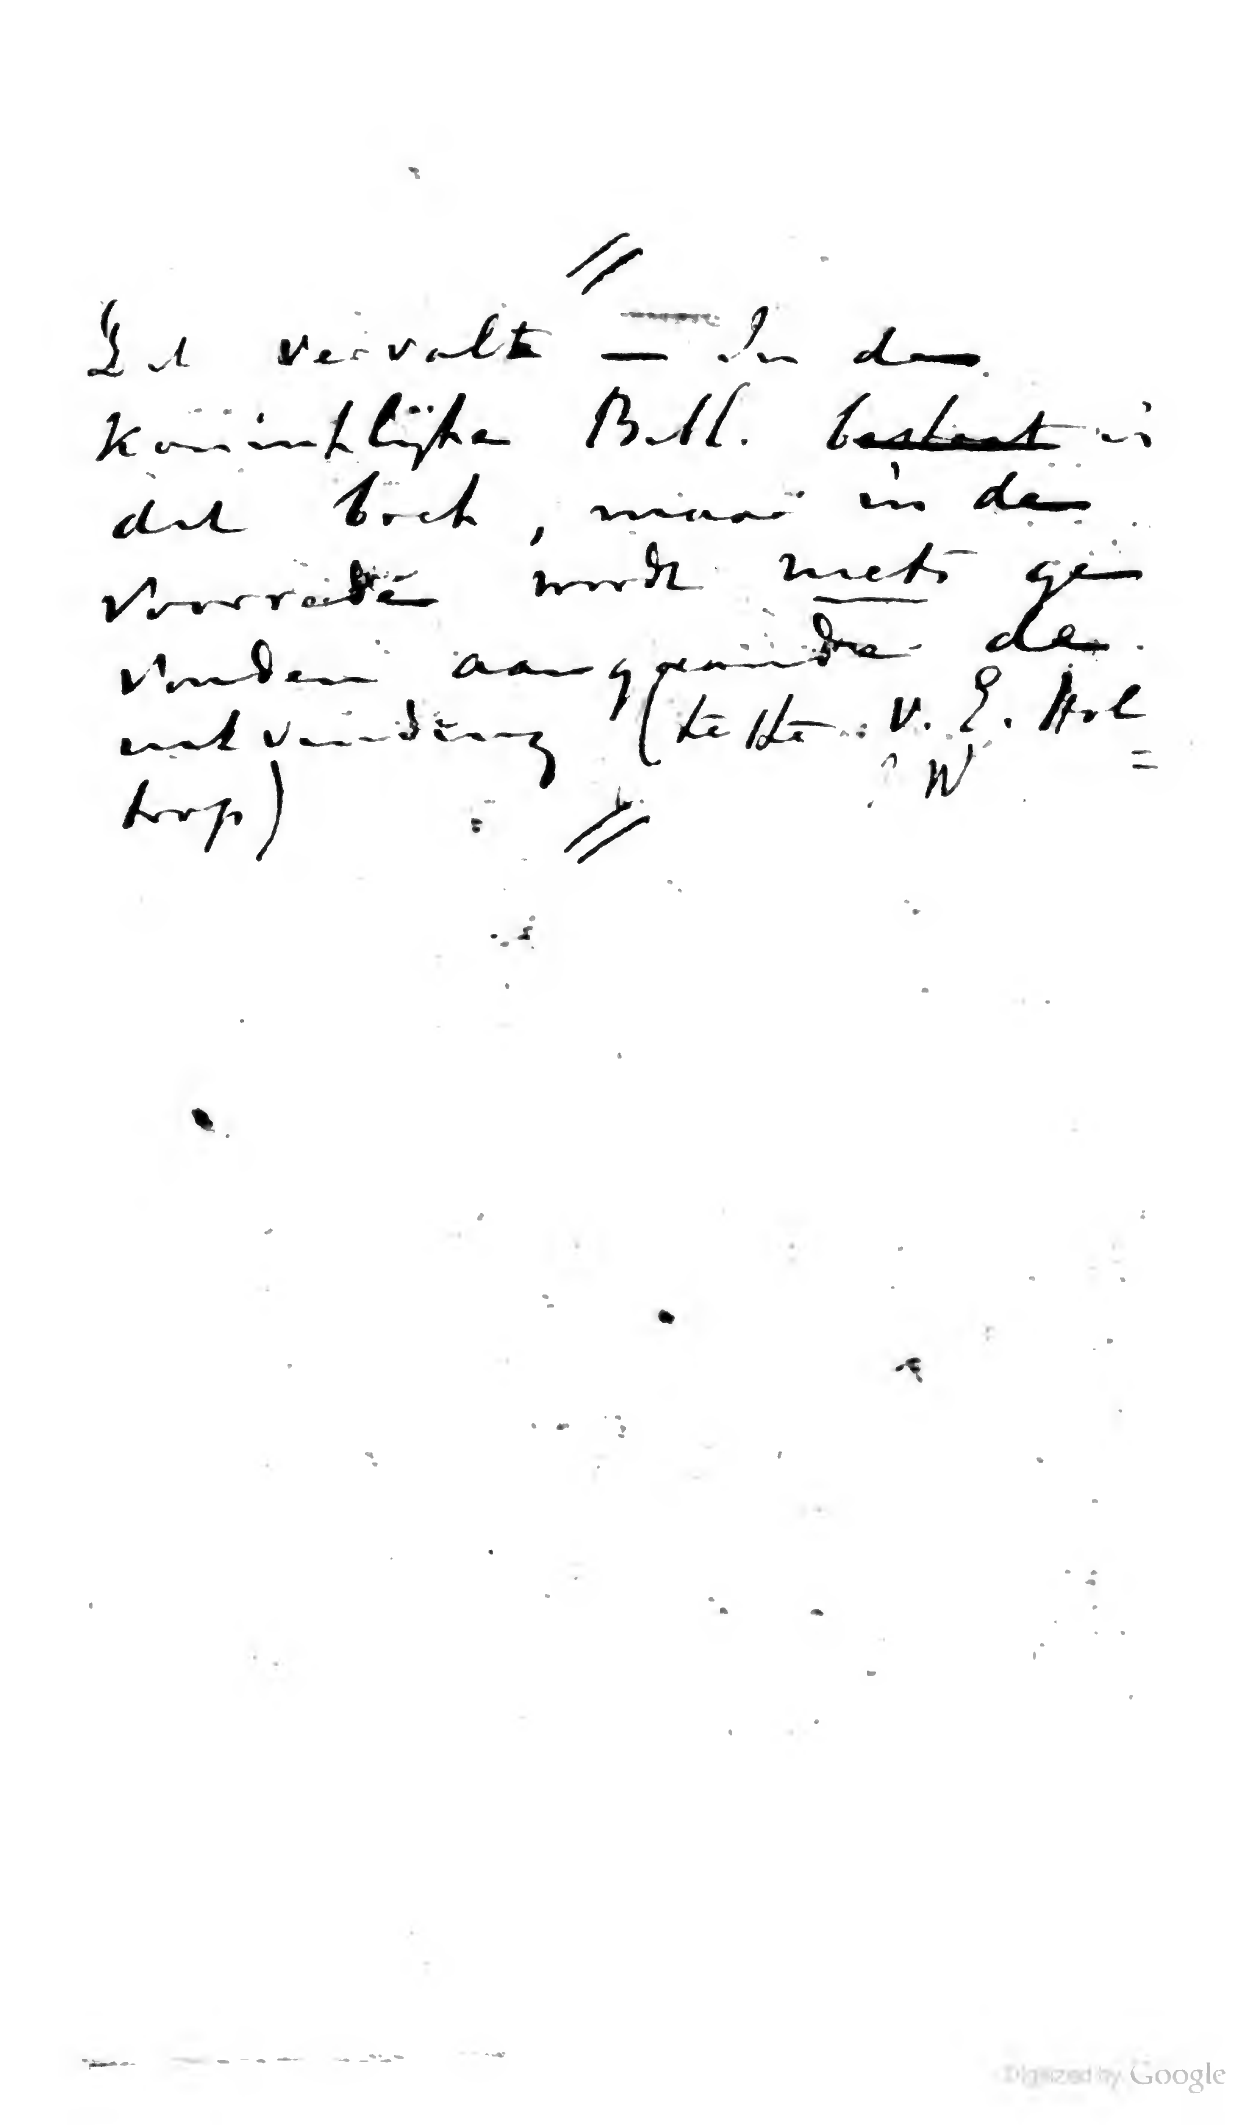 Dit vervalt — In de
Koninklijke Bibl. bestaat is
dit boek, maar in de
Voorrede wordt niets ge
vonden aangaande de
uitvinding (lettre v. E. Hol
W =
trop)
Digitized by Google